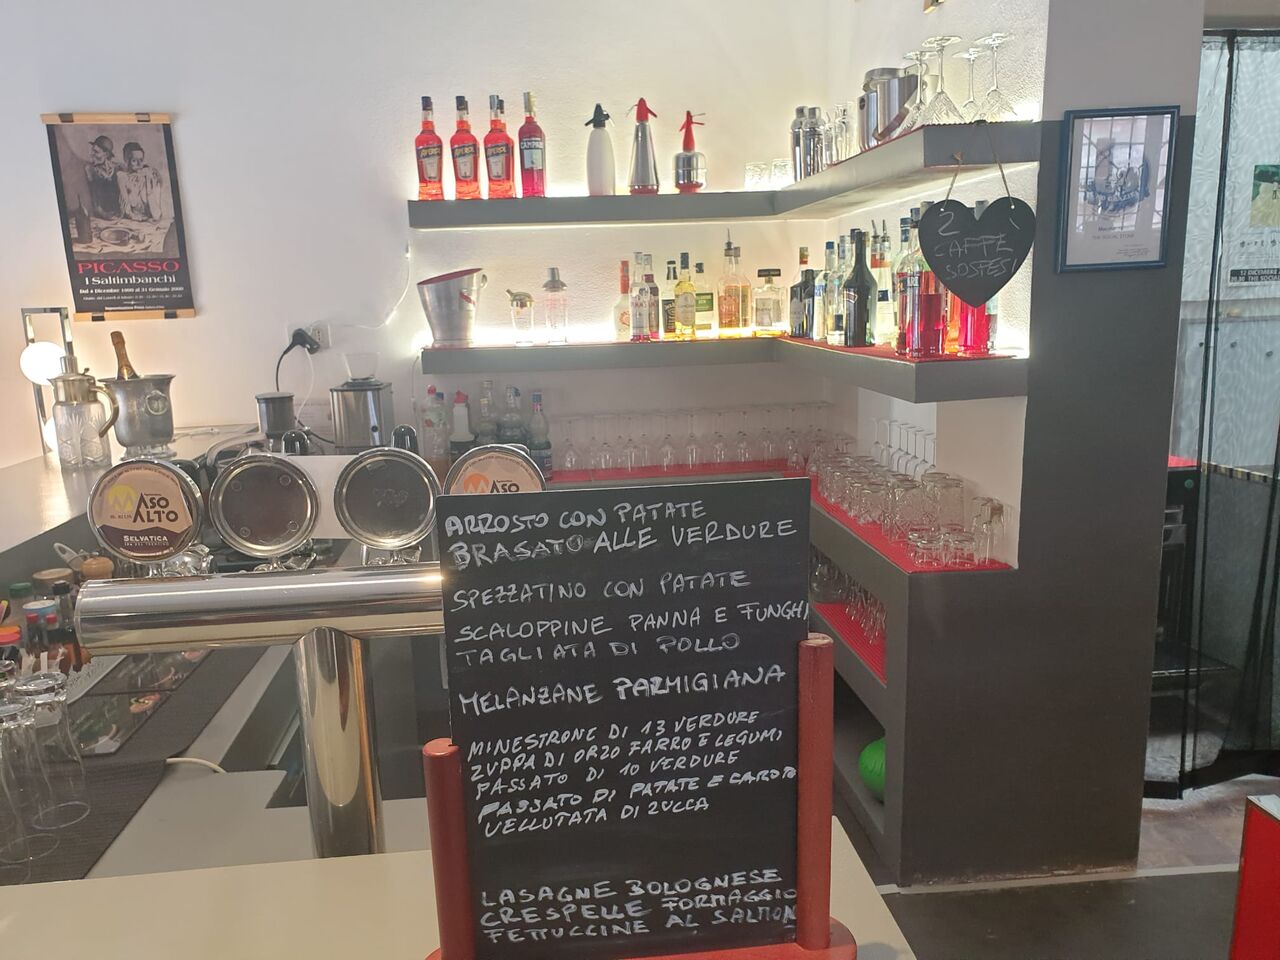 PICASSO
I Saltimbanchi
APEROL
APEROL
APEROL
CAMPARI
2
CAFFÈ
SOSPESI
THE SOCIAL STONE
12 DICEMBRE
MASO
ALTO
SELVATICA
MASO
ARROSTO CON PATATE
BRASATO ALLE VERDURE
SPEZZATINO CON PATATE
SCALOPPINE PANNA E FUNGHI
TAGLIATA DI POLLO
MELANZANE PARMIGIANA
MINESTRONE DI 13 VERDURE
ZUPPA DI ORZO FARRO E LEGUMI
PASSATO DI 10 VERDURE
PASSATO DI PATATE E CAROTE
VELLUTATA DI ZUCCA
LASAGNE BOLOGNESE
CRESPELLE FORMAGGIO
FETTUCCINE AL SALMON